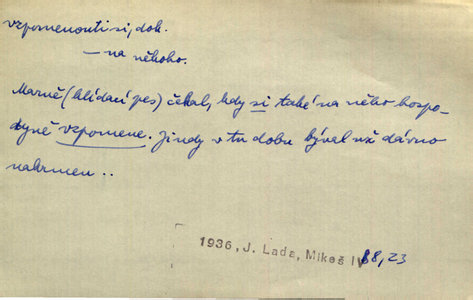 vzpomenouti si, dok.
— na někoho.
Marně (hlídací pes) čekal, kdy si také na něho hospo-
dyně vzpomene. Jindy v tu dobu býval už dávno
nakrmen ..
1936, J. Lada, Mikeš IV 88,23